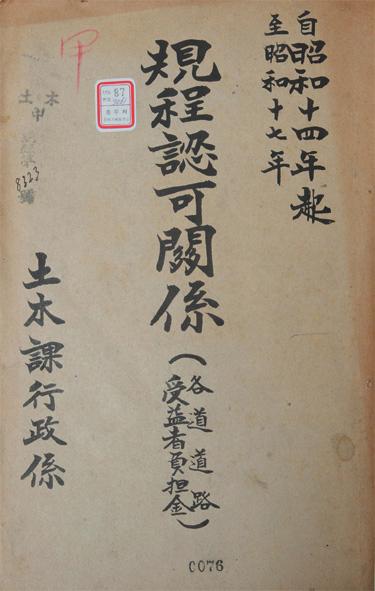 自昭和十四年起
至昭和十七年
規程認可關係
(各道道路
受益者負担金)
土木課行政係
甲
土木
87
8323
號
0076